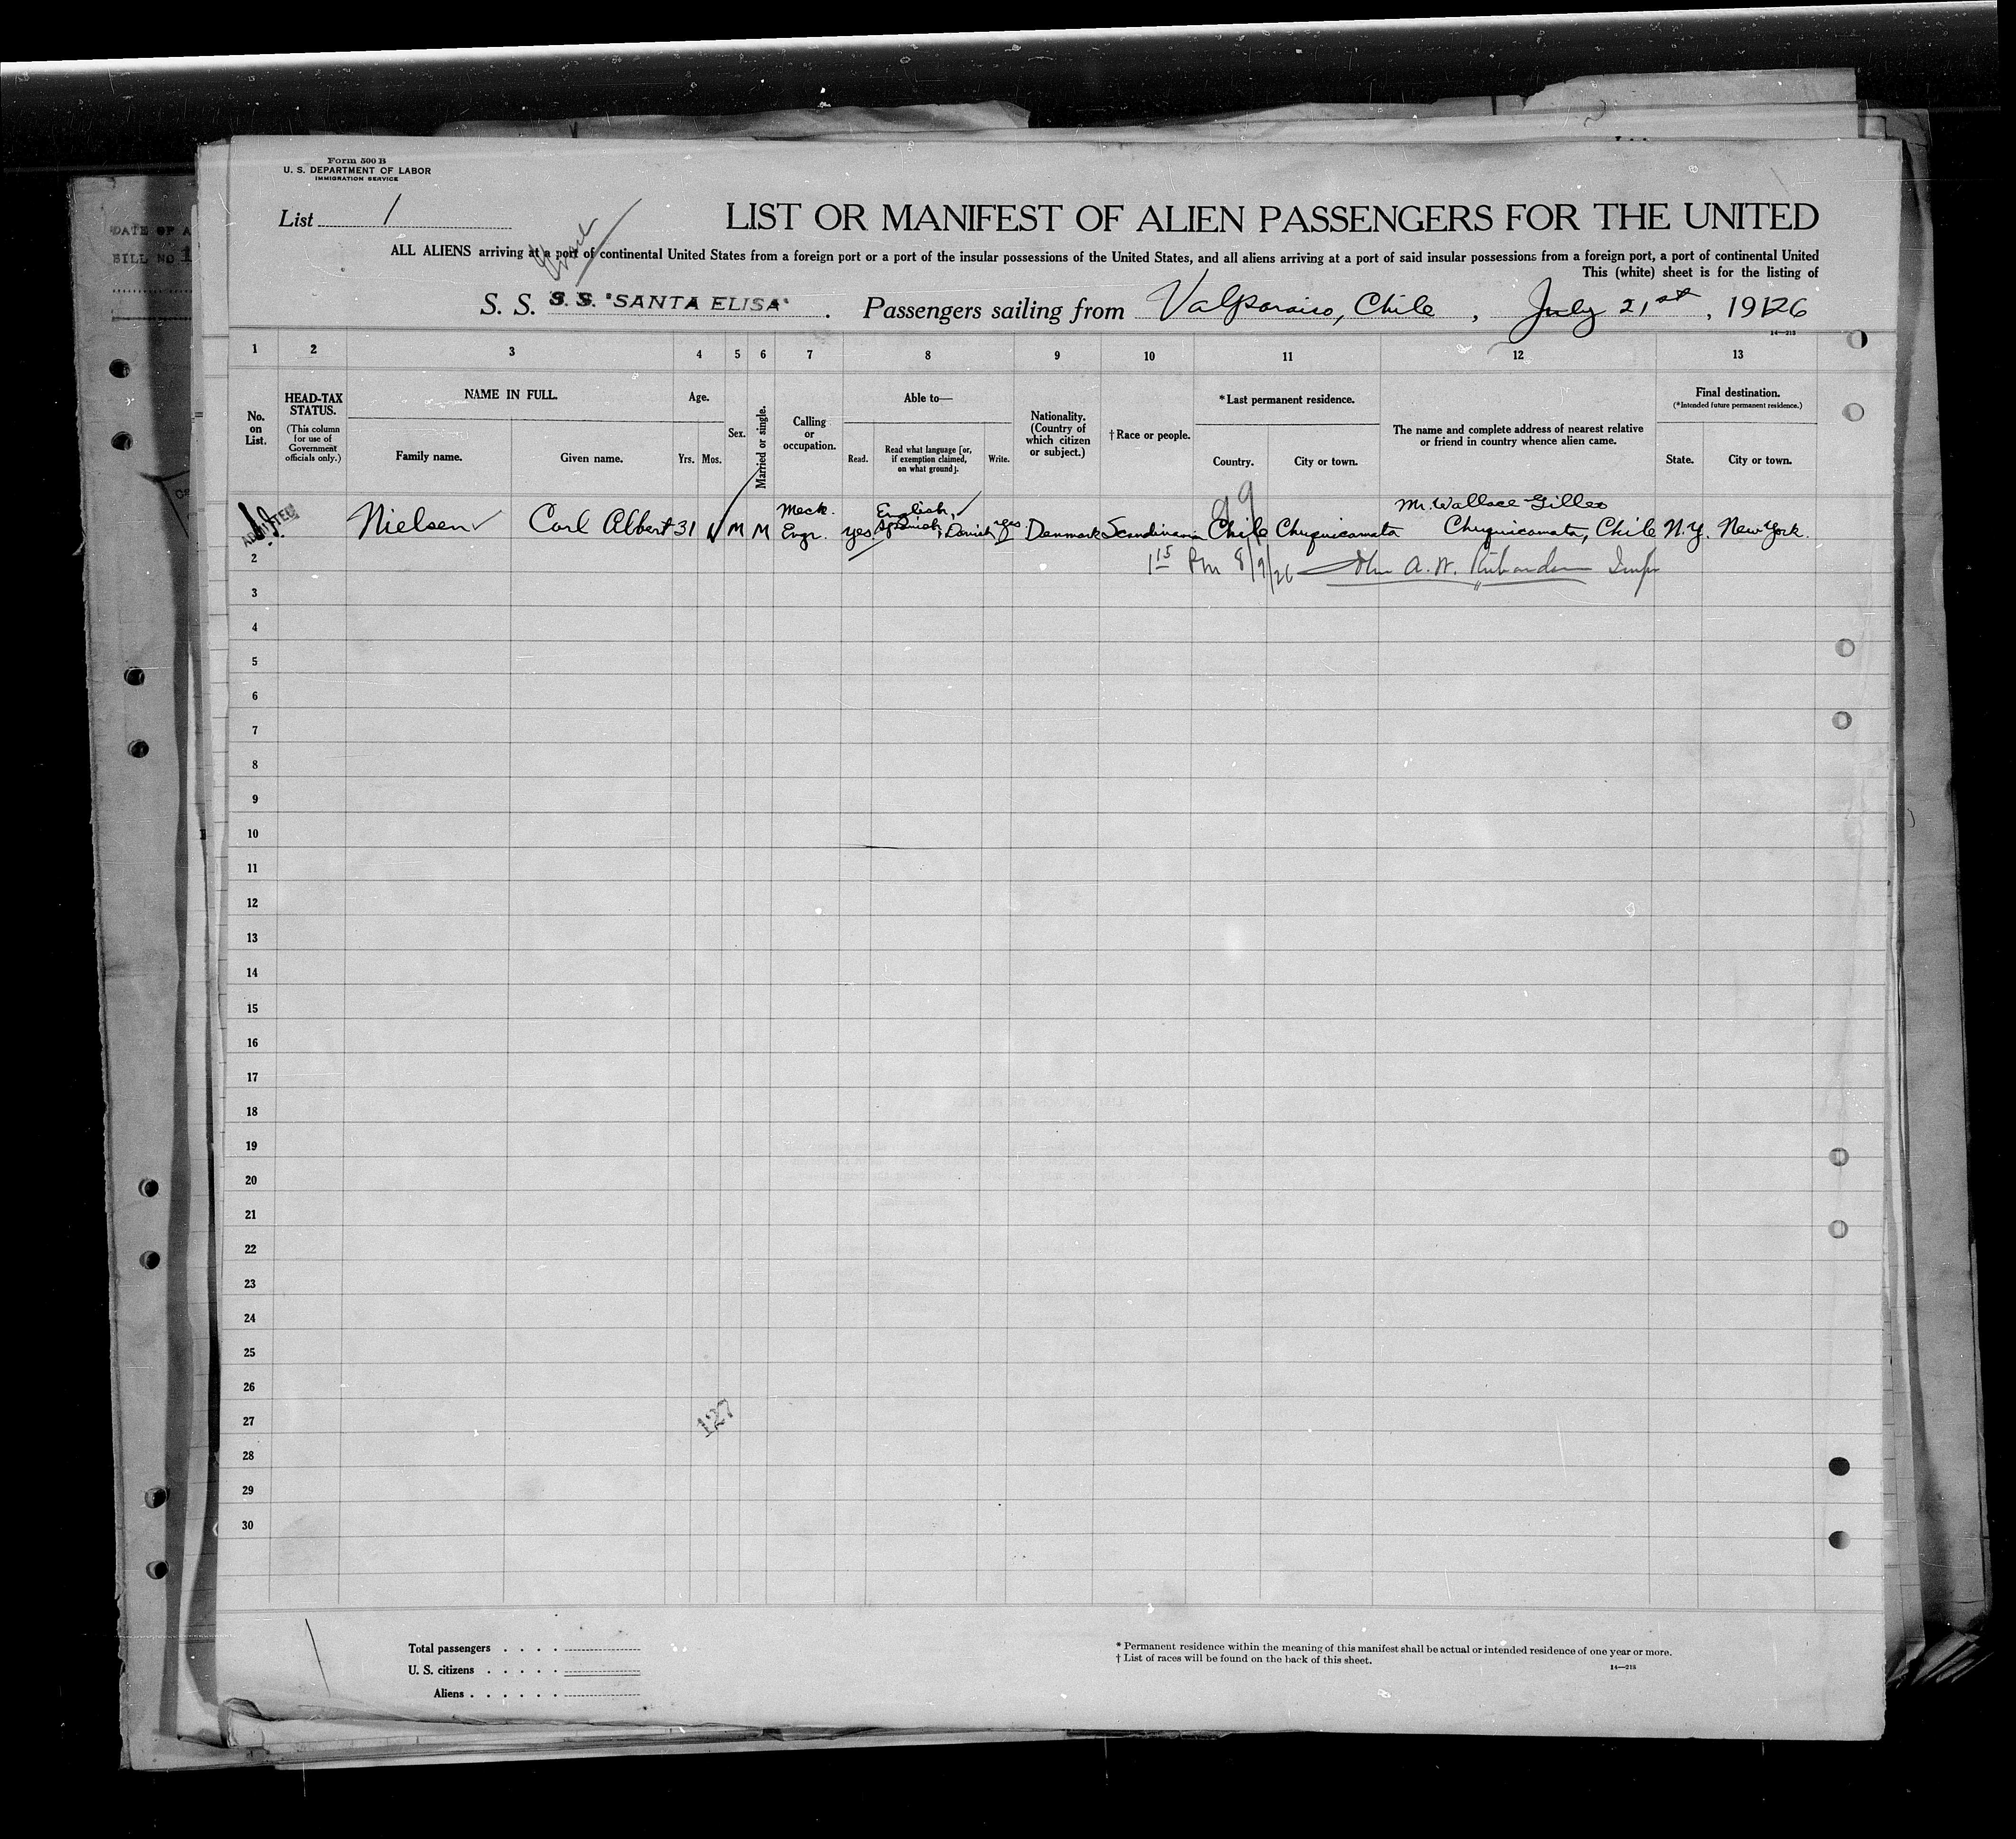 Form 500 B
U. S. DEPARTMENT OF LABOR
IMMIGRATION SERVICE
DATE OF A
BILL NO 1
List 1
LIST OR MANIFEST OF ALIEN PASSENGERS FOR THE UNITED
ALL ALIENS arriving at a port of continental United States from a foreign port or a port of the insular possessions of the United States, and all aliens arriving at a port of said insular possessions from a foreign port, a port of continental United
This (white) sheet is for the listing of
S. S. S. S. "SANTA ELISA". Passengers sailing from Valparaiso, Chile, July 21st, 1926
14—218
1 2 3 4 5 6 7 8 9 10 11 12 13
No. on List.
HEAD-TAX STATUS.
(This column for use of Government officials only.)
NAME IN FULL.
Family name.
Given name.
Age.
Yrs. Mos.
Sex.
Married or single.
Calling or occupation.
Able to—
Read.
Read what language [or, if exemption claimed, on what ground].
Write.
Nationality. (Country of which citizen or subject.)
†Race or people.
*Last permanent residence.
Country.
City or town.
The name and complete address of nearest relative or friend in country whence alien came.
Final destination.
(*Intended future permanent residence.)
State.
City or town.
ADMITTED
Nielsen Carl Albert 31 M M Mech. Engr. yes English, Spanish, Danish yes Denmark Scandinavian Chile Chuquicamata Mr. Wallace Gilles Chuquicamata, Chile N.Y. New York.
99
2 1 15 Pm 8/9/26
3
4
5
6
7
8
9
10
11
12
13
14
15
16
17
18
19
20
21
22
23
24
25
26
27
127
28
29
30
Total passengers . . . .
U. S. citizens . . . . .
Aliens . . . . . .
* Permanent residence within the meaning of this manifest shall be actual or intended residence of one year or more.
† List of races will be found on the back of this sheet.
14—218